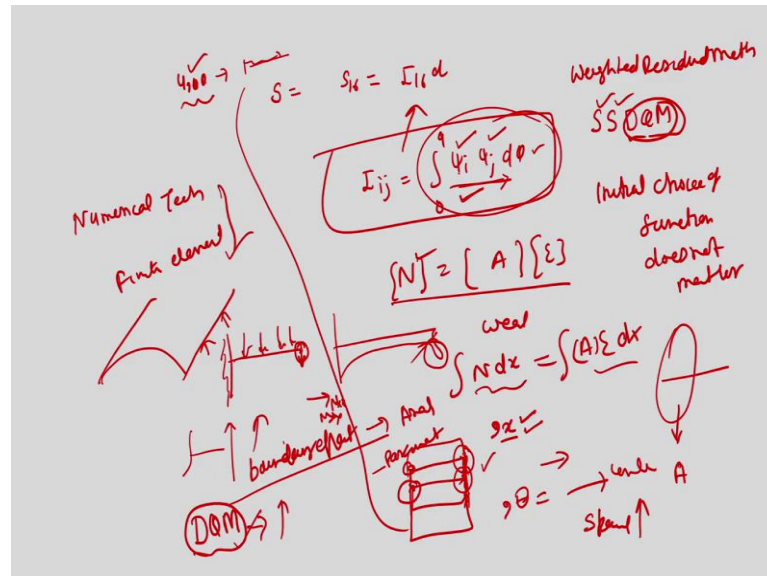 S = S₁₆ = I₁₆ d
Weighted Residual Meth
SS DQM
I_ij = ∫₀ᵃ ψ_i ψ_j dφ
Numerical Tech
Finite element
Initial choice of
function
does not
matter
[N] = [A]{ε}
weak
∫ N dx = ∫ (A) ε dx
boundary effect → Anal
,x
,θ =
A
DQM → ↑